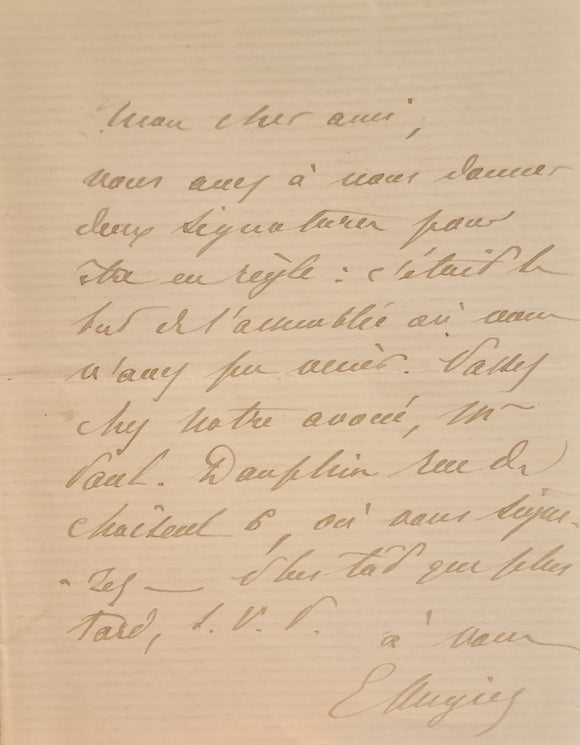 Mon cher ami,
vous avez à nous donner
deux signatures pour
être en règle : c'était le
but de l'assemblée où vous
n'avez pu venir. Passez
chez notre avoué, Mr
Paul. Dauphin rue de
Choiseul 6, où vous signe-
-rez — plus tôt que plus
tard, S. V. P.
à vous
E Augier